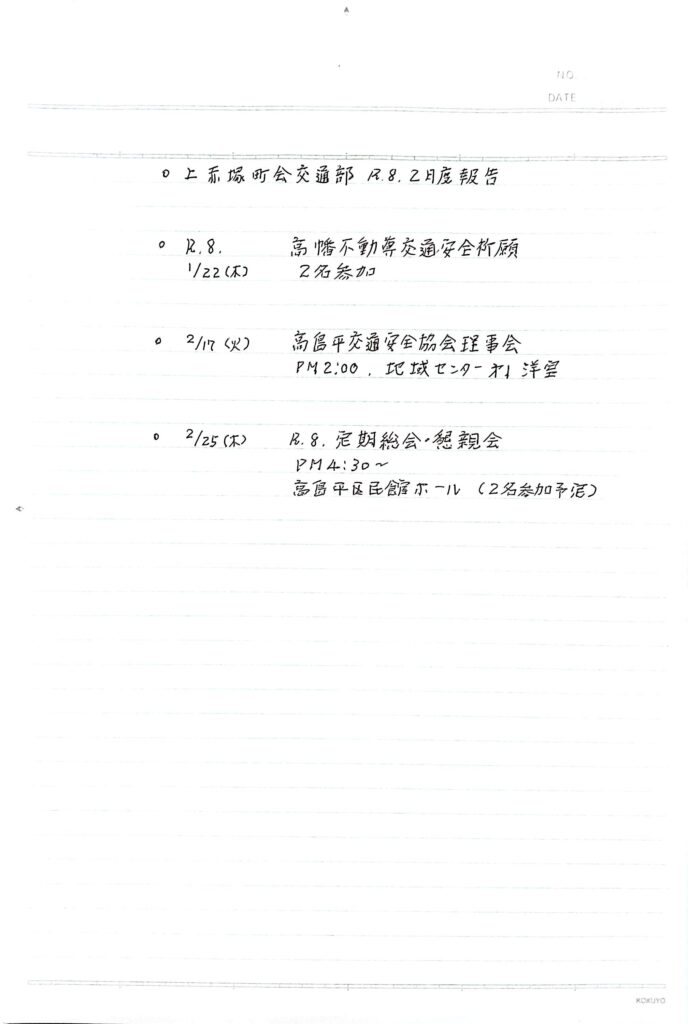 NO.
DATE
○ 上赤塚町会交通部 R.8.2月度報告
○ R.8. 高幡不動尊交通安全祈願
1/22(木) 2名参加
○ 2/17(火) 高島平交通安全協会理事会
PM2:00. 地域センター 才1 洋室
○ 2/25(木) R.8. 定期総会・懇親会
PM4:30~
高島平区民館ホール (2名参加予定)
KOKUYO